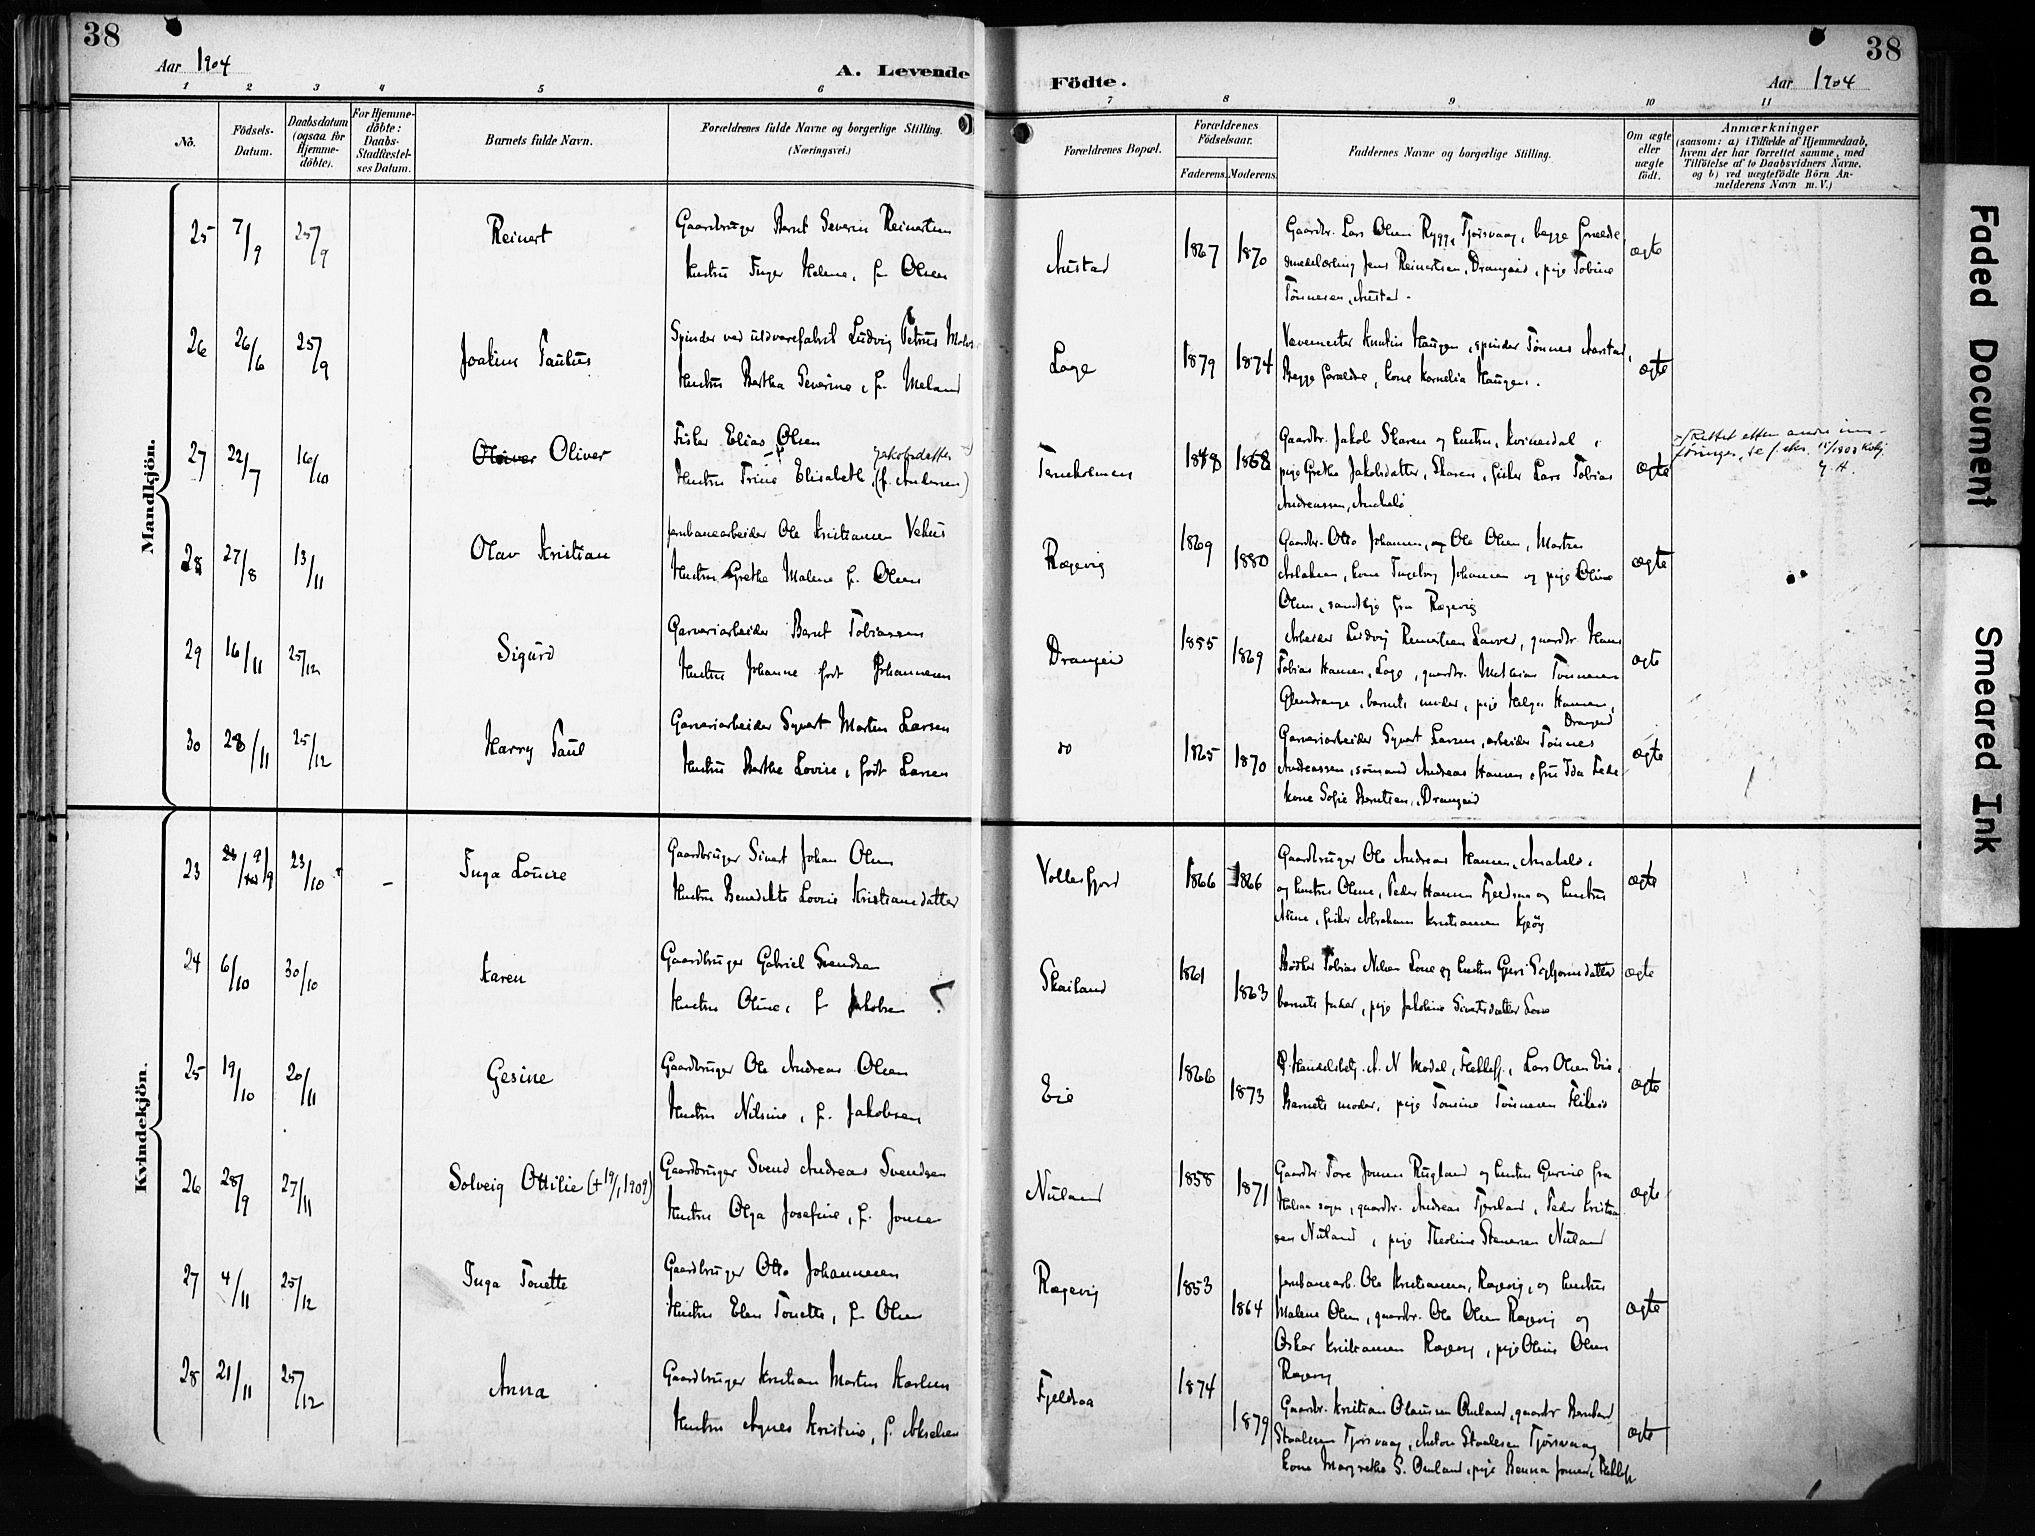 38
Aar 1904
A. Levende
Födte.
Aar 1904
38
1 2 3 4 5 6 7 8 9 10 11
No.
Födsels-
Datum.
Daabsdatum
(ogsaa for
Hjemme-
döbte).
For Hjemme-
döbte:
Daabs-
Stadfæstel-
ses Datum.
Barnets fulde Navn.
Forældrenes fulde Navne og borgerlige Stilling.
(Næringsvei.)
Forældrenes Bopæl.
Forældrenes
Födselsaar.
Faderens. Moderens.
Faddernes Navne og borgerlige Stilling.
Om ægte
eller
uægte
födt.
Anmærkninger
(saasom: a) i Tilfælde af Hjemmedaab,
hvem der har forrettet samme, med
Tilföielse af to Daabsvidners Navne,
og b) ved uægtefödte Börn An-
melderens Navn m. V.)
Mandkjön.
25 7/9 25/9 Reinert
Gaardbruger Bernt Severin Reinertsen
Hustru Inger Helene, f. Olsen
Austad 1867 1870
Gaardbr. Lars Olsen Rygg, Tjørsvaag, begge forældre
smedelærling Jens Reinertsen, Drangeid, pige Tobine
Tønnesen, Austad.
ægte
26 26/6 25/9 Joakim Paulus
Spinder ved uldvarefabrik Ludvig Petrus
Hustru Bertha Severine, f. Meland
Loge 1879 1874
Vævemester Haugen, spinder Tønnes Aarstad,
Begge forældre, kone Kornelia Haugen.
ægte
27 22/7 16/10 Oliver Oliver
Fisker Elias Olsen
Hustru Trine Elisabeth (f. Andersen)
Jakobsdatter
Terneholmen 1848 1858
Gaardbr. Jakob Skaren og hustru, Kvinesdal,
pige Grethe Jakobsdatter, Skaren, fisker Lars Tobias
Andreassen, Anabelø
ægte
Rettet etter andre inn-
føringer, se f.eks. 1808
28 27/8 13/11 Olav Kristian
Jernbanearbeider Ole Kristiansen Vehus
Hustru Grethe Malene f. Olsen
Rægevig 1869 1880
Gaardbr. Otto Johansen, og Ole Olsen, Morten
Aslaksen, kone Ingeborg Johansen og pige Oline
Olsen, samtlige fra Rægevig
ægte
29 16/11 25/12 Sigurd
Garveriarbeider Bernt Tobiassen
Hustru Johanne født Johannesen
Drangeid 1855 1869
Arbeider Ludvig Reinertsen Lauved, gaardbr. Hans
Tobias Hansen, Loge, gaardbr. Mathias Tønnesen
Glendrange, barnets moder, pige Helga Hansen,
Drangeid
ægte
30 28/11 25/12 Harry Paul
Garveriarbeider Syvert Martin Larsen
Hustru Berthe Lovise, født Larsen
do 1865 1870
Garveriarbeider Syvert Larsen, arbeider Tønnes
Andreassen, sømand Andreas Hansen, fru Ida Fede
kone Sofie Berntsen, Drangeid
ægte
Kvindekjön.
23 9/9 23/10 - Inga Louise
Gaardbruger Sivert Johan Olsen
Hustru Benedikte Lovise Kristiansdatter
Vollesfjord 1866 1866
Gaardbruger Ole Andreas Hansen, Anabelø,
og hustru Oline, Peder Hansen Fjeldsaa og hustru
Asine, fisker Abraham Kristiansen Kjeøy
ægte
24 6/10 30/10 Karen
Gaardbruger Gabriel Svendsen
Hustru Oline, f. Jakobsen
Skailand 1861 1863
Bødker Tobias Nilsen Lone og hustru Guri Sigbjørnsdatter
barnets fader, pige Jakobine Sivertsdatter Lone
ægte
25 19/10 20/11 Gesine
Gaardbruger Ole Andreas Olsen
Hustru Nilsine, f. Jakobsen
Eie 1866 1873
Handelsbetj. A. N. Modal, Flekkefj., Lars Olsen Eie,
Barnets moder, pige Tonsine Tønnesen Flikeid
ægte
26 28/9 27/11 Solveig Ottilie (+ 19/1 1909)
Gaardbruger Svend Andreas Svendsen
Hustru Olga Josefine, f. Jonsen
Nuland 1858 1871
Gaardbr. Tore Jonsen Rugland og hustru Gurine fra
Halsaa sogn, gaardbr. Andreas Fjersland, Peder Kristian-
sen Nuland, pige Theoline Stenersen Nuland
ægte
27 4/11 25/12 Inga Tonette
Gaardbruger Otto Johannesen
Hustru Elen Tonette, f. Olsen
Rægevig 1853 1864
Jernbanearb. Ole Kristiansen, Rægevig, og hustru
Malene Olsen, gaardbr. Ole Olsen Rægevig og
Oskar Kristiansen Rægevig, pige Oline Olsen
Rægevig
ægte
28 21/11 25/12 Anna
Gaardbruger Kristian Martin Karlsen
Hustru Agnes Kristine, f. Akselsen
Fjeldsaa 1874 1879
Gaardbr. Kristian Olausen Omland, gaardbr Bernhard
Staalesen Tjørsvaag, Anton Staalesen Tjørsvaag
kone Margrethe S. Omland, pige Benna Jonsen, Flekkefj
ægte
Faded Document
Smeared Ink